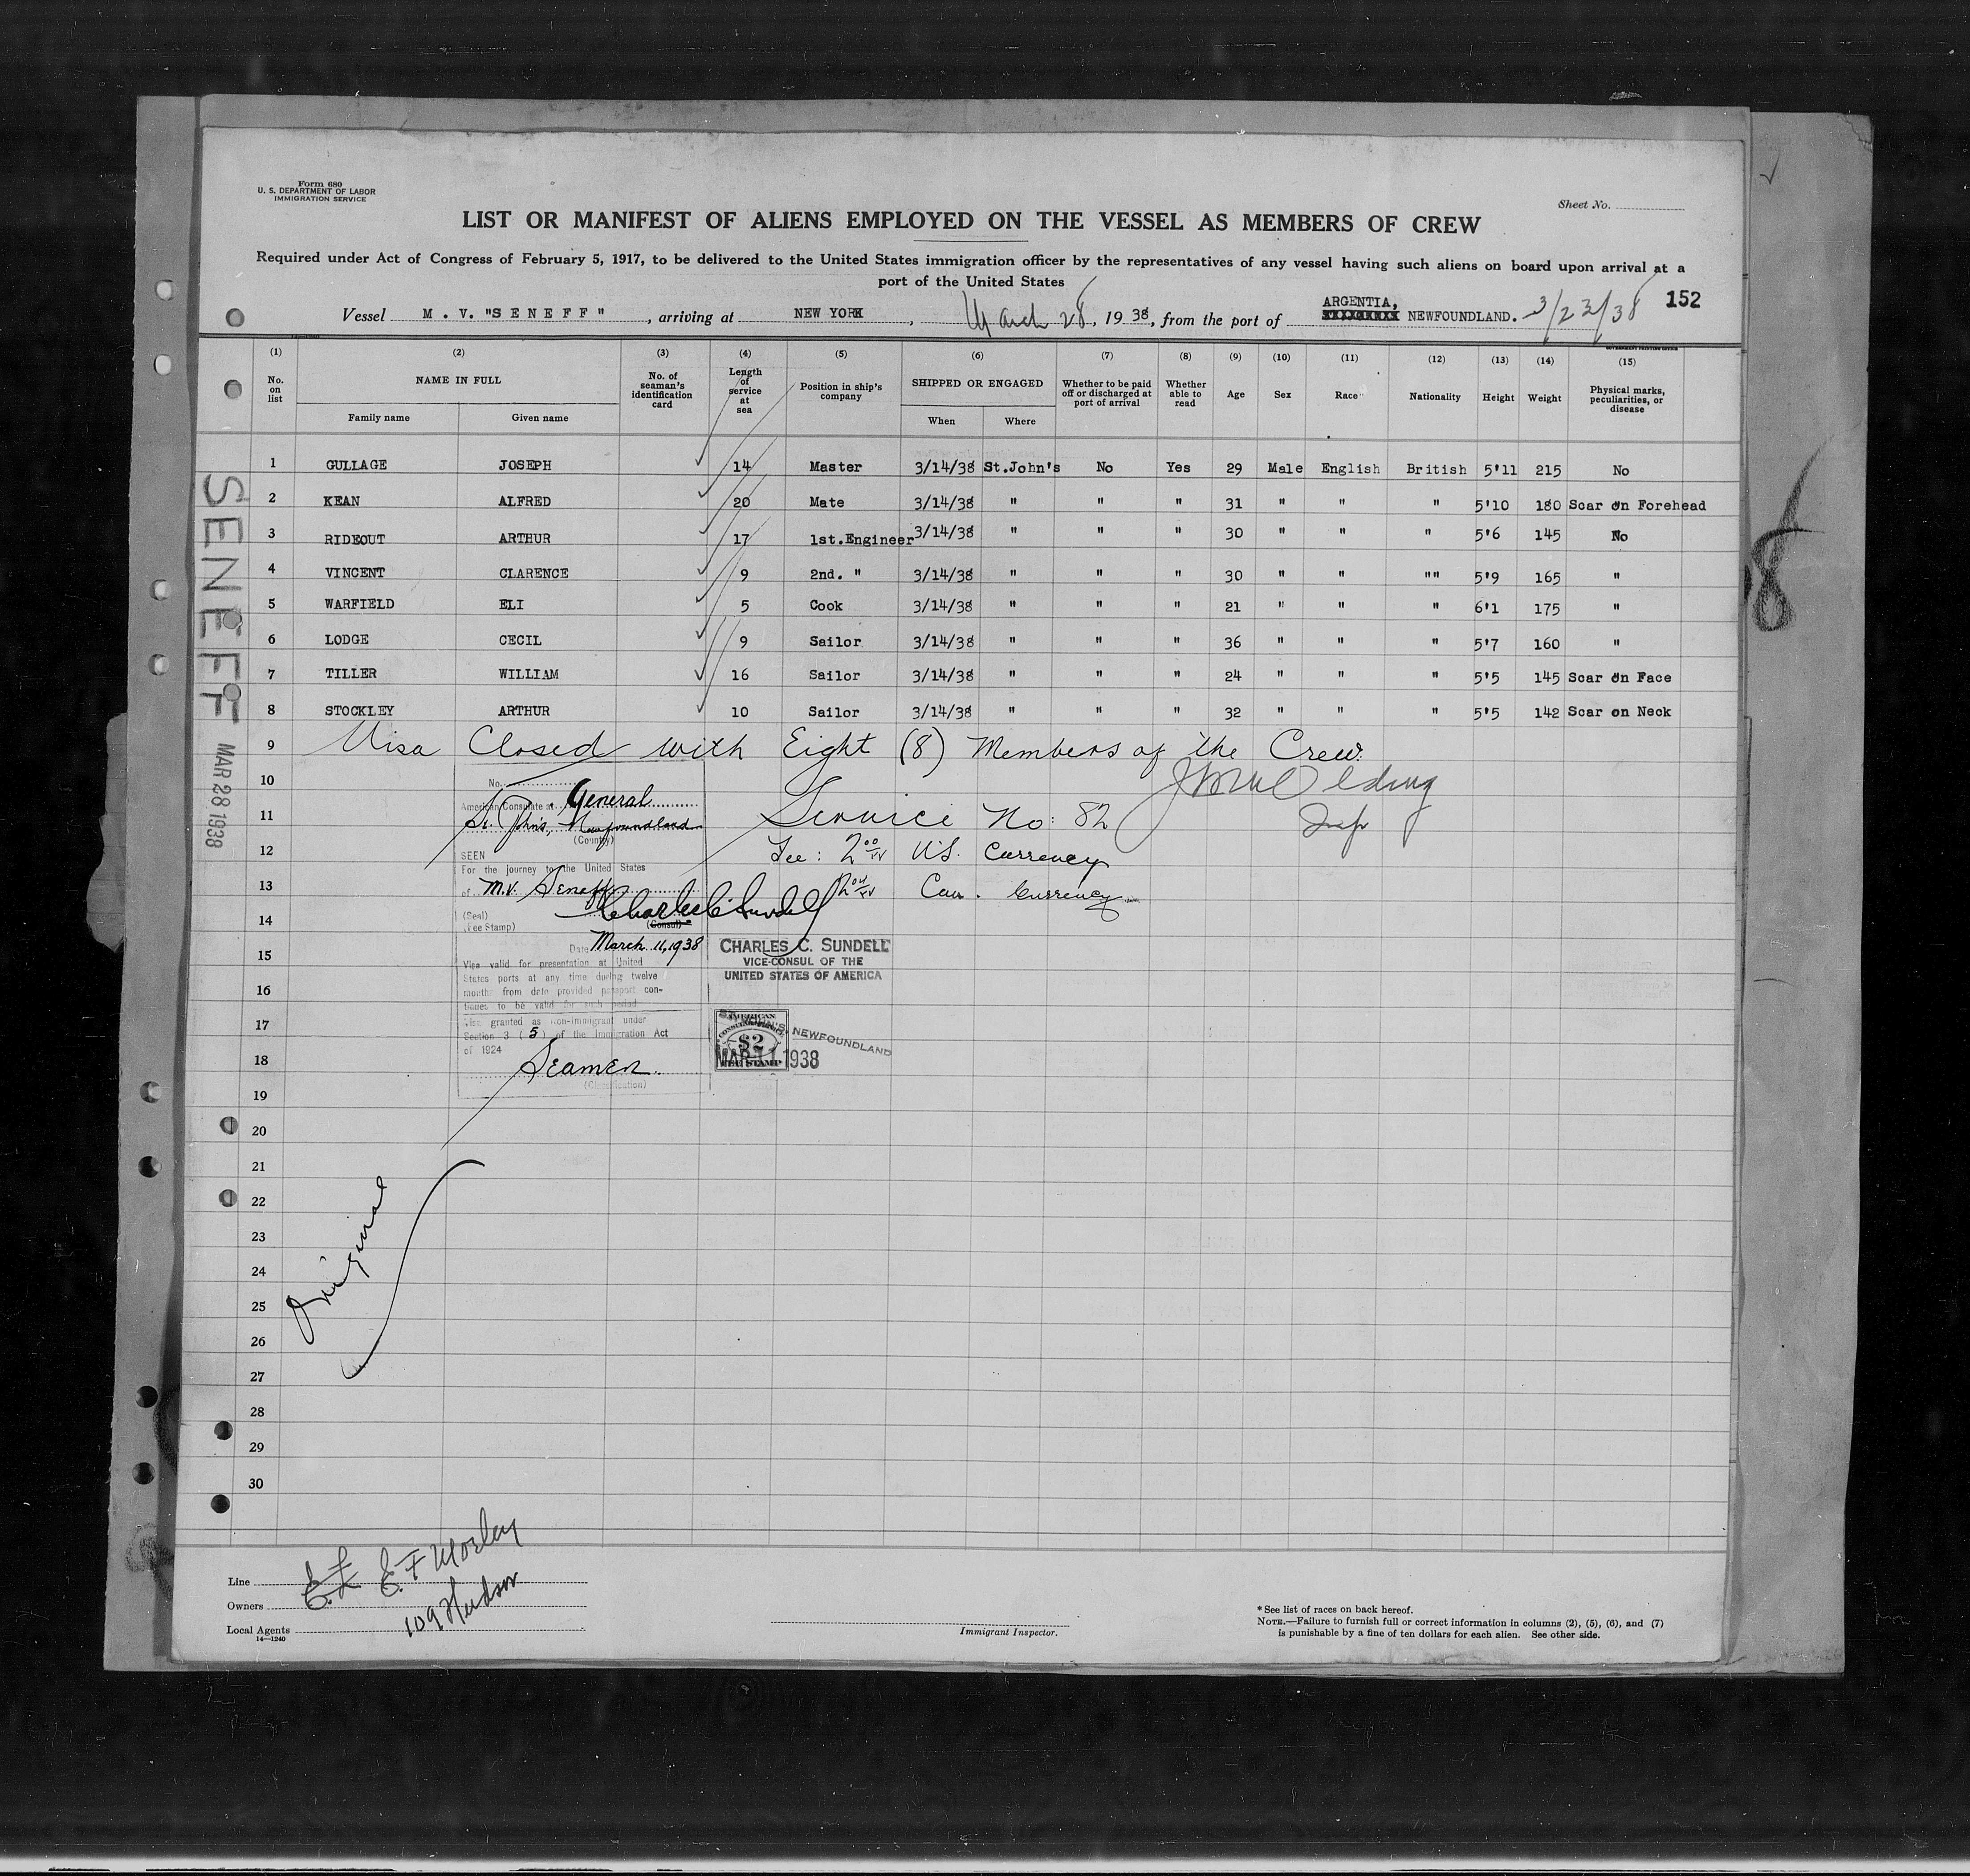 Form 680
U. S. DEPARTMENT OF LABOR
IMMIGRATION SERVICE
Sheet No.
LIST OR MANIFEST OF ALIENS EMPLOYED ON THE VESSEL AS MEMBERS OF CREW
Required under Act of Congress of February 5, 1917, to be delivered to the United States immigration officer by the representatives of any vessel having such aliens on board upon arrival at a
port of the United States
Vessel M. V. "SENEFF", arriving at NEW YORK, March 28, 1938, from the port of ARGENTIA, NEWFOUNDLAND. 3/23/38 152
(1) (2) (3) (4) (5) (6) (7) (8) (9) (10) (11) (12) (13) (14) (15)
No. on list NAME IN FULL Family name Given name No. of seaman's identification card Length of service at sea Position in ship's company SHIPPED OR ENGAGED When Where Whether to be paid off or discharged at port of arrival Whether able to read Age Sex Race Nationality Height Weight Physical marks, peculiarities, or disease
1 GULLAGE JOSEPH 14 Master 3/14/38 St.John's No Yes 29 Male English British 5'11 215 No
2 KEAN ALFRED 20 Mate 3/14/38 " " " 31 " " " 5'10 180 Scar on Forehead
3 RIDEOUT ARTHUR 17 1st.Engineer 3/14/38 " " " 30 " " " 5'6 145 No
4 VINCENT CLARENCE 9 2nd. " 3/14/38 " " " 30 " " "" 5'9 165 "
5 WARFIELD ELI 5 Cook 3/14/38 " " " 21 " " " 6'1 175 "
6 LODGE CECIL 9 Sailor 3/14/38 " " " 36 " " " 5'7 160 "
7 TILLER WILLIAM 16 Sailor 3/14/38 " " " 24 " " " 5'5 145 Scar on Face
8 STOCKLEY ARTHUR 10 Sailor 3/14/38 " " " 32 " " " 5'5 142 Scar on Neck
9 Visa Closed with Eight (8) Members of the Crew.
10 No.
American Consulate at General
11 St. John's, Newfoundland Service No: 82
(Country)
12 SEEN Fee: 2 00 U.S. Currency
For the journey to the United States
13 of M.V. Seneff Can. Currency
(Seal) Charles C. Sundell
14 (Fee Stamp) (Consul)
Date March 11, 1938
15 CHARLES C. SUNDELL
VICE-CONSUL OF THE
UNITED STATES OF AMERICA
Visa valid for presentation at United
States ports at any time during twelve
16 months from date provided passport con-
tinues to be valid for such period
17 Visa granted as non-immigrant under
Section 3 (5) of the Immigration Act
of 1924
18 Seamen.
(Classification)
AMERICAN
$2
ST. JOHN'S, NEWFOUNDLAND
MAR 11 1938
19
20
21
22
23
24
25
26
27
28
29
30
Original
SENEFF
MAR 28 1938
Line
Owners E. F Morley
Local Agents 109 Hudson
14—1240
Immigrant Inspector.
* See list of races on back hereof.
NOTE.—Failure to furnish full or correct information in columns (2), (5), (6), and (7)
is punishable by a fine of ten dollars for each alien. See other side.